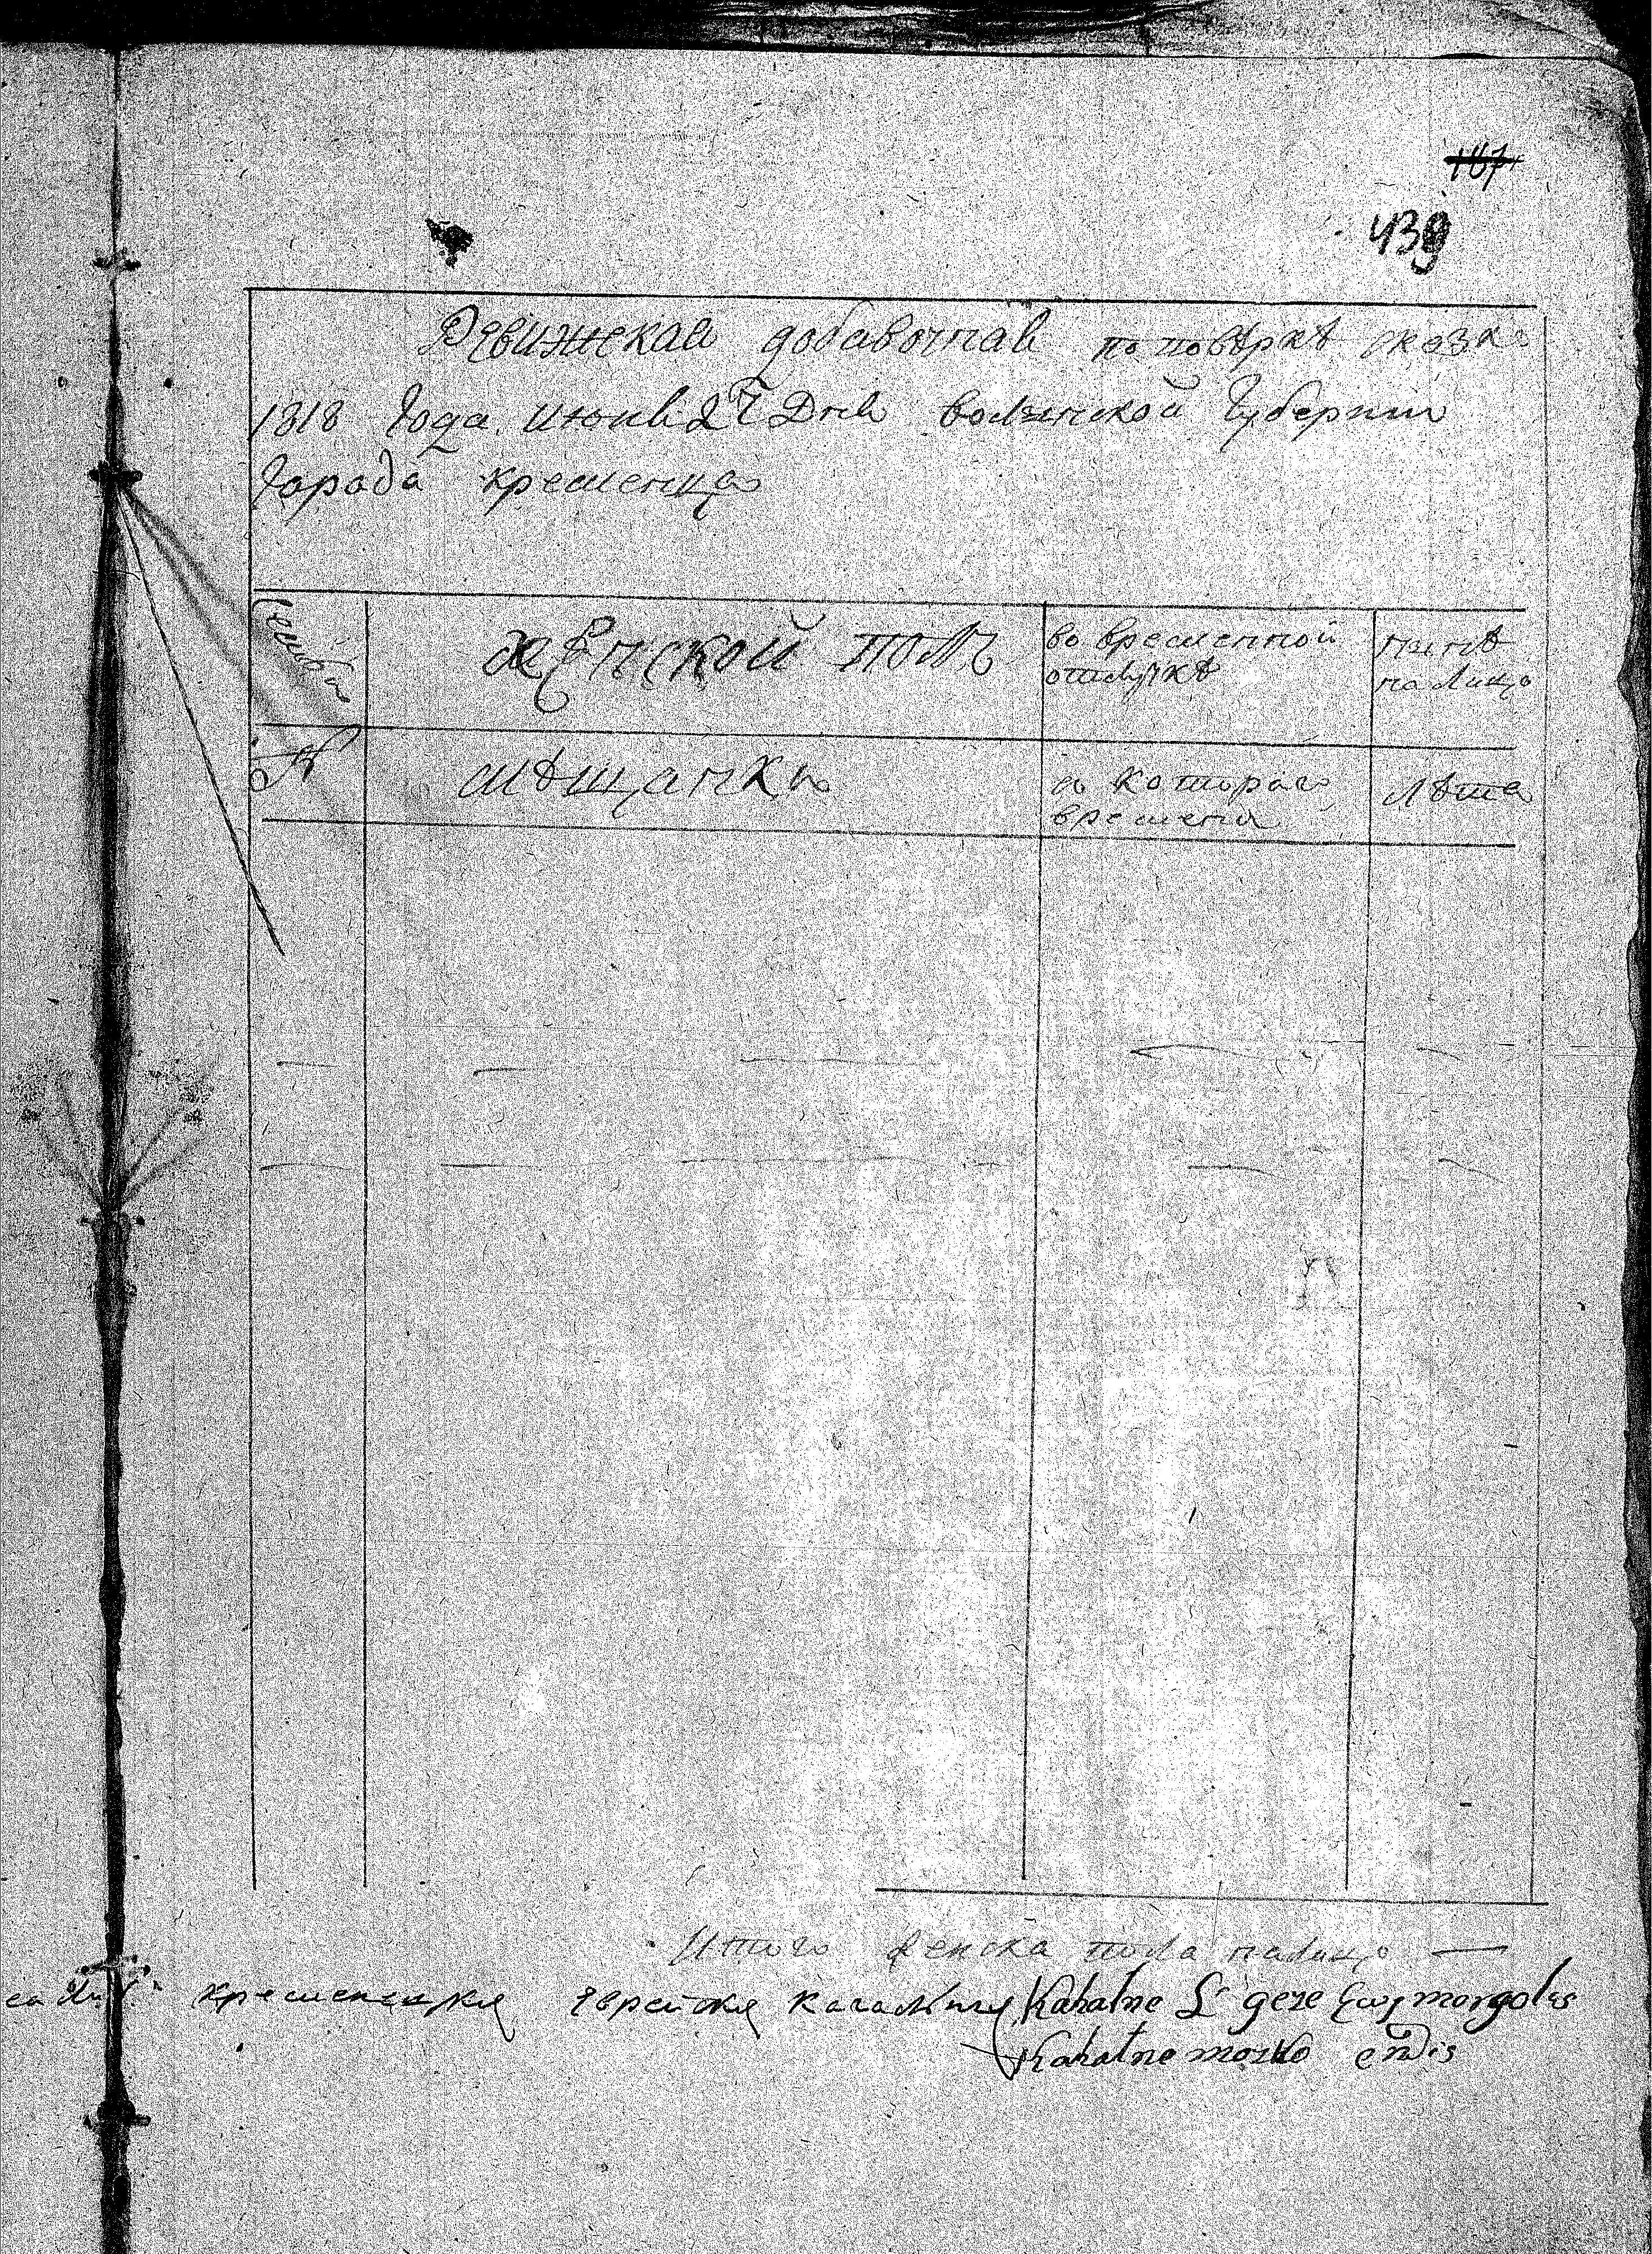 167
439
Ревижская добавочная по повѣркѣ сказка
1818 Года июня 27 Дня волынской Губернии
Города кременца
Семьба
женской полъ
во временной
отлучкѣ
нынѣ
на лицо
№
мѣщанки
с котораго
времени
лѣта
Итого женска пола налицо —
кременецкия еврейския кагалныя Kahalne morgolis
Kahalne mosko